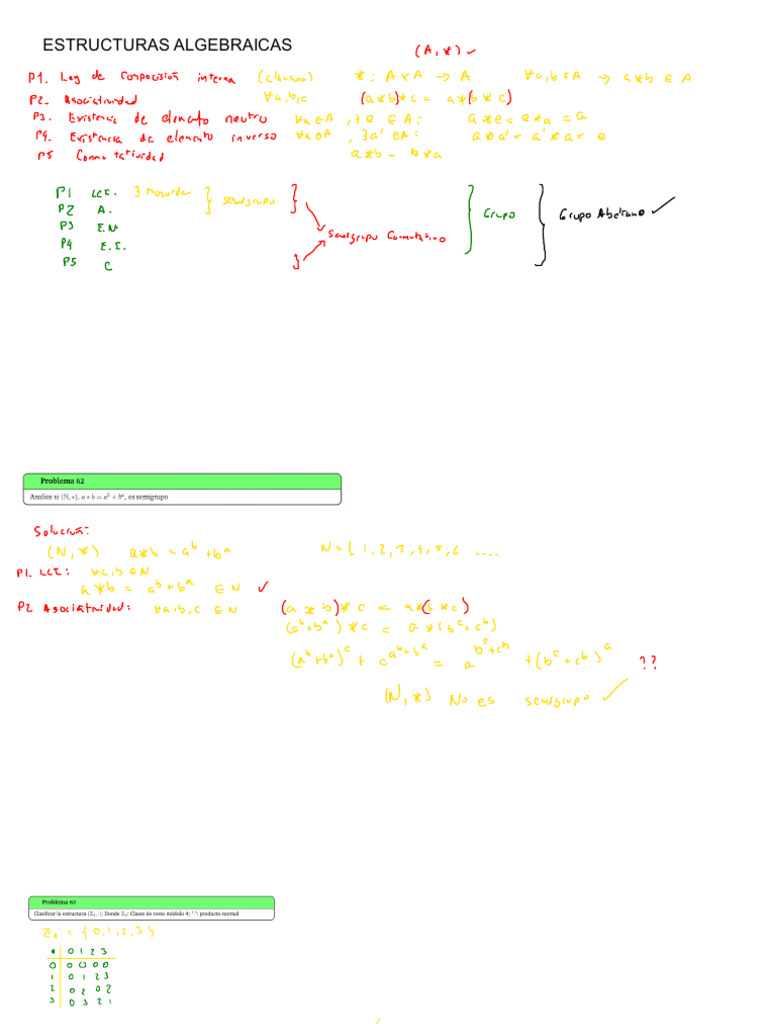 ESTRUCTURAS ALGEBRAICAS
(A, *) ✓
P1. Ley de composición interna (clausura) * : A x A → A ∀a,b ∈ A → a*b ∈ A
P2. Asociatividad ∀a,b,c (a*b)*c = a*(b*c)
P3. Existencia de elemento neutro ∀a ∈ A, ∃ e ∈ A: a*e = e*a = a
P4. Existencia de elemento inverso ∀a ∈ A, ∃ a' ∈ A: a*a' = a'*a = e
P5 Conmutatividad a*b = b*a
P1 LCI. } Monoide } semigrupo
P2 A.
P3 E.N
P4 E.I.
P5 C
Semigrupo Conmutativo
Grupo
Grupo Abeliano ✓
Problema 62
Analice si (N, *), a * b = a^b + b^a, es semigrupo
Solución:
(N, *) a*b = a^b + b^a N = { 1, 2, 3, 4, 5, 6 ....
P1. LCI: ∀a,b ∈ N
a*b = a^b + b^a ∈ N ✓
P2 Asociatividad: ∀a,b,c ∈ N (a * b)*c = a*(b*c)
(a^b + b^a)*c = a*(b^c + c^b)
(a^b + b^a)^c + c^(a^b + b^a) = a^(b^c + c^b) + (b^c + c^b)^a ??
(N, *) No es semigrupo ✓
Problema 63
Clasificar la estructura (Z₄, ·); Donde Z₄: Clases de resto módulo 4; "·": producto normal
Z₄ = {0,1,2,3}
• 0 1 2 3
0 0 0 0 0
1 0 1 2 3
2 0 2 0 2
3 0 3 2 1